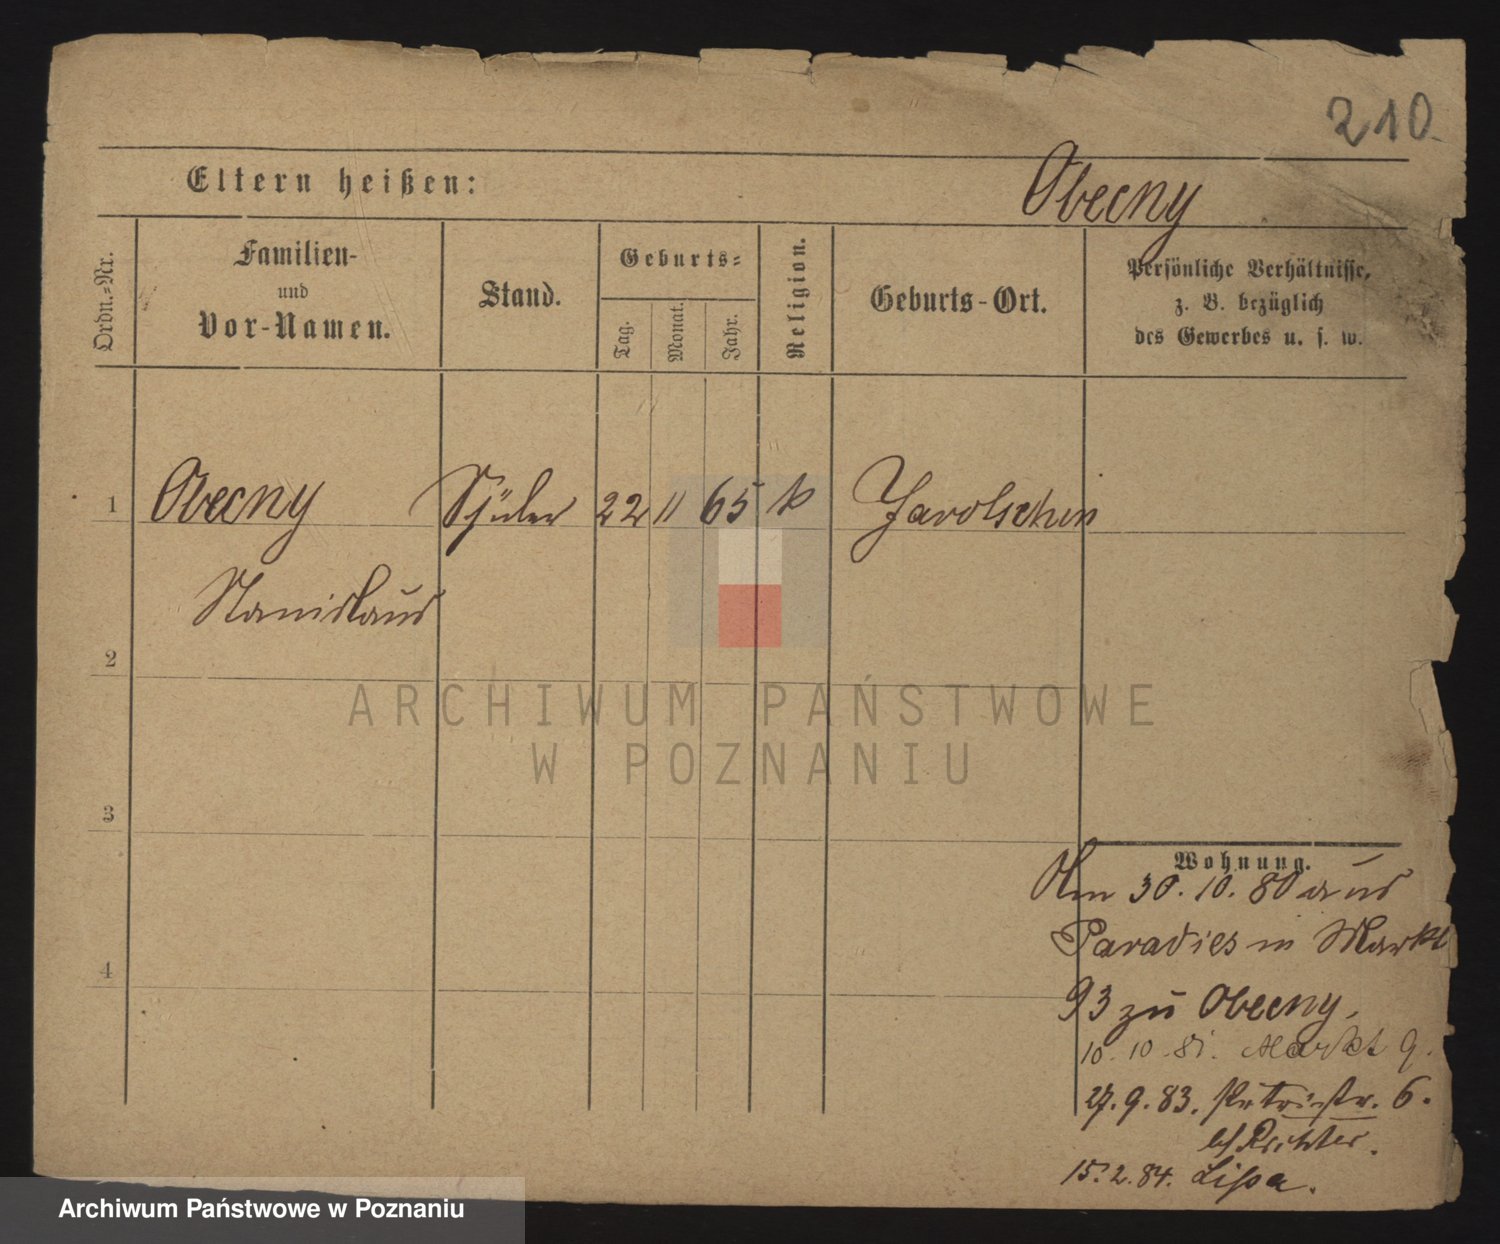 210
Eltern heißen:
Obecny
Ordn.-Nr.
Familien-
und
Vor-Namen.
Stand.
Geburts-
Tag.
Monat.
Jahr.
Religion.
Geburts-Ort.
Persönliche Verhältnisse,
z. B. bezüglich
des Gewerbes u. s. w.
1 Obecny Schüler 22 11 65 k Jarotschin
Stanislaus
2
ARCHIWUM PAŃSTWOWE
W POZNANIU
3
Wohnung.
Am 30. 10. 80 aus
Paradies in Markt
4
93 zu Obecny.
10. 10. 81. Markt 9.
27. 9. 83. Petristr. 6.
b/ Richter.
15. 2. 84. Lissa.
Archiwum Państwowe w Poznaniu